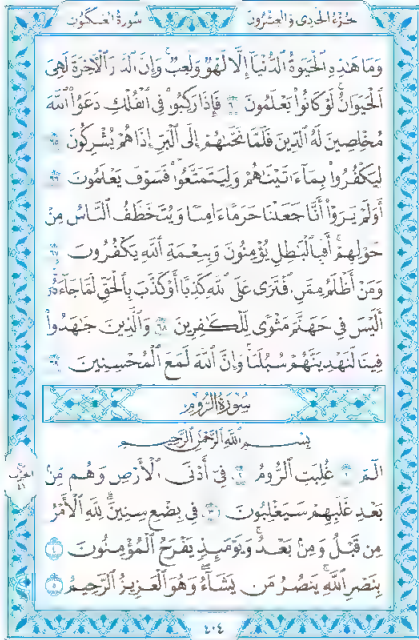 سُورَةُ العَنكَبُوتِ
الجُزْءُ الحَادِى وَالعِشْرُونَ
وَمَا هَٰذِهِ الْحَيَوٰةُ الدُّنْيَآ إِلَّا لَهْوٌ وَلَعِبٌ ۚ وَإِنَّ الدَّارَ الْأَخِرَةَ لَهِىَ
الْحَيَوَانُ ۚ لَوْ كَانُوا۟ يَعْلَمُونَ ٦٤ فَإِذَا رَكِبُوا۟ فِى الْفُلْكِ دَعَوُا۟ اللَّهَ
مُخْلِصِينَ لَهُ الدِّينَ فَلَمَّا نَجَّىٰهُمْ إِلَى الْبَرِّ إِذَا هُمْ يُشْرِكُونَ ٦٥
لِيَكْفُرُوا۟ بِمَآ ءَاتَيْنَٰهُمْ وَلِيَتَمَتَّعُوا۟ ۖ فَسَوْفَ يَعْلَمُونَ ٦٦
أَوَلَمْ يَرَوْا۟ أَنَّا جَعَلْنَا حَرَمًا ءَامِنًا وَيُتَخَطَّفُ النَّاسُ مِنْ
حَوْلِهِمْ ۚ أَفَبِالْبَٰطِلِ يُؤْمِنُونَ وَبِنِعْمَةِ اللَّهِ يَكْفُرُونَ ٦٧
وَمَنْ أَظْلَمُ مِمَّنِ افْتَرَىٰ عَلَى اللَّهِ كَذِبًا أَوْ كَذَّبَ بِالْحَقِّ لَمَّا جَآءَهُۥٓ ۚ
أَلَيْسَ فِى جَهَنَّمَ مَثْوًى لِّلْكَٰفِرِينَ ٦٨ وَالَّذِينَ جَٰهَدُوا۟
فِينَا لَنَهْدِيَنَّهُمْ سُبُلَنَا ۚ وَإِنَّ اللَّهَ لَمَعَ الْمُحْسِنِينَ ٦٩
سُورَةُ الرُّومِ
بِسْمِ اللَّهِ الرَّحْمَٰنِ الرَّحِيمِ
الٓمٓ ١ غُلِبَتِ الرُّومُ ٢ فِىٓ أَدْنَى الْأَرْضِ وَهُم مِّنۢ
بَعْدِ غَلَبِهِمْ سَيَغْلِبُونَ ٣ فِى بِضْعِ سِنِينَ ۗ لِلَّهِ الْأَمْرُ
مِن قَبْلُ وَمِنۢ بَعْدُ ۚ وَيَوْمَئِذٍ يَفْرَحُ الْمُؤْمِنُونَ ٤
بِنَصْرِ اللَّهِ ۚ يَنصُرُ مَن يَشَآءُ ۖ وَهُوَ الْعَزِيزُ الرَّحِيمُ ٥
٤٠٤